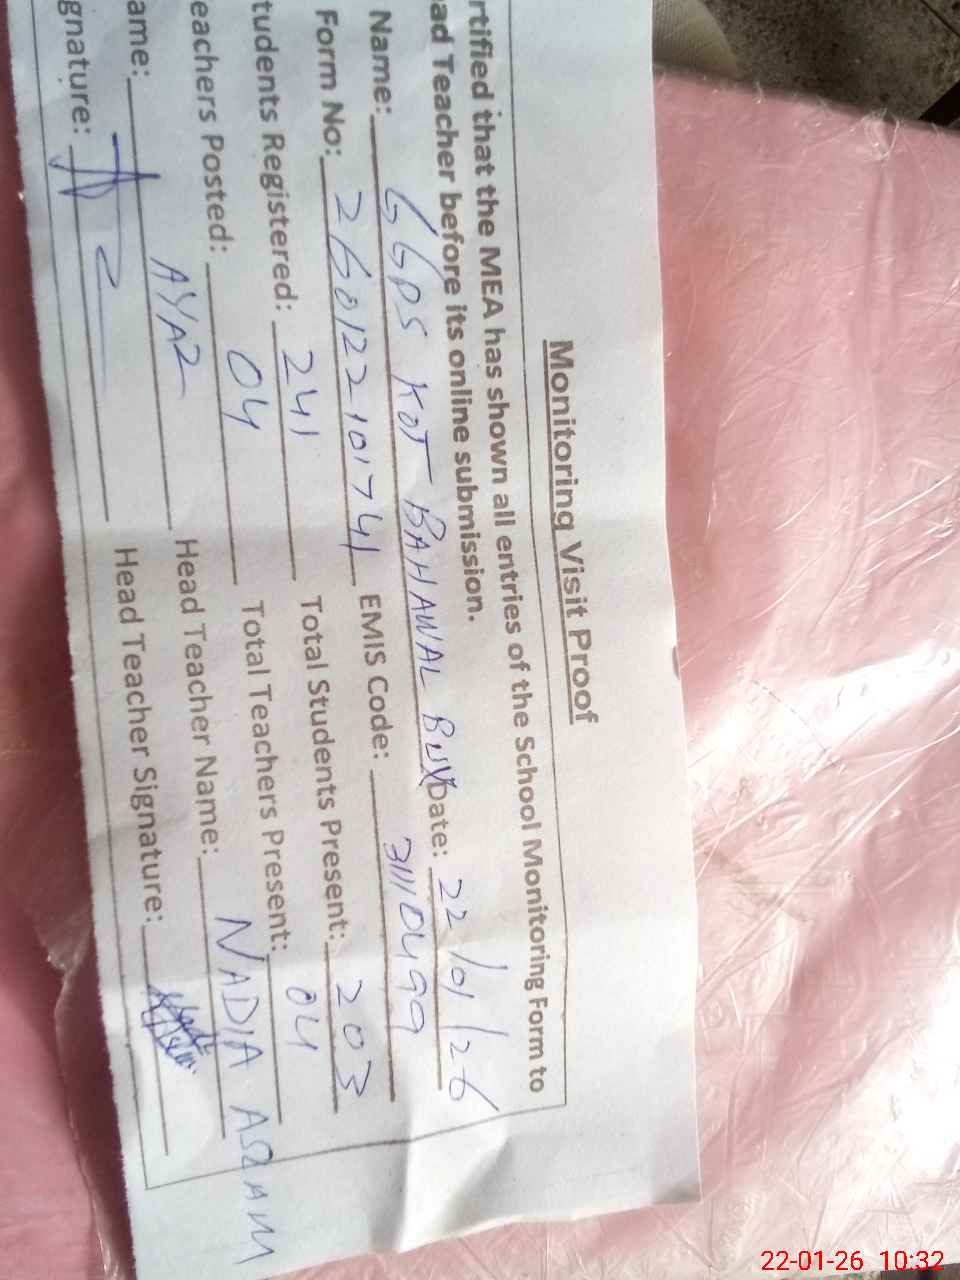 Monitoring Visit Proof
rtified that the MEA has shown all entries of the School Monitoring Form to
ad Teacher before its online submission.
Name: GGPS KOT BAHAWAL BUX Date: 22/01/26
Form No: 26012210174 EMIS Code: 31110499
tudents Registered: 241 Total Students Present: 203
eachers Posted: 04 Total Teachers Present: 04
ame: AYAZ Head Teacher Name: NADIA ASLAM
gnature: Head Teacher Signature:
22-01-26 10:32